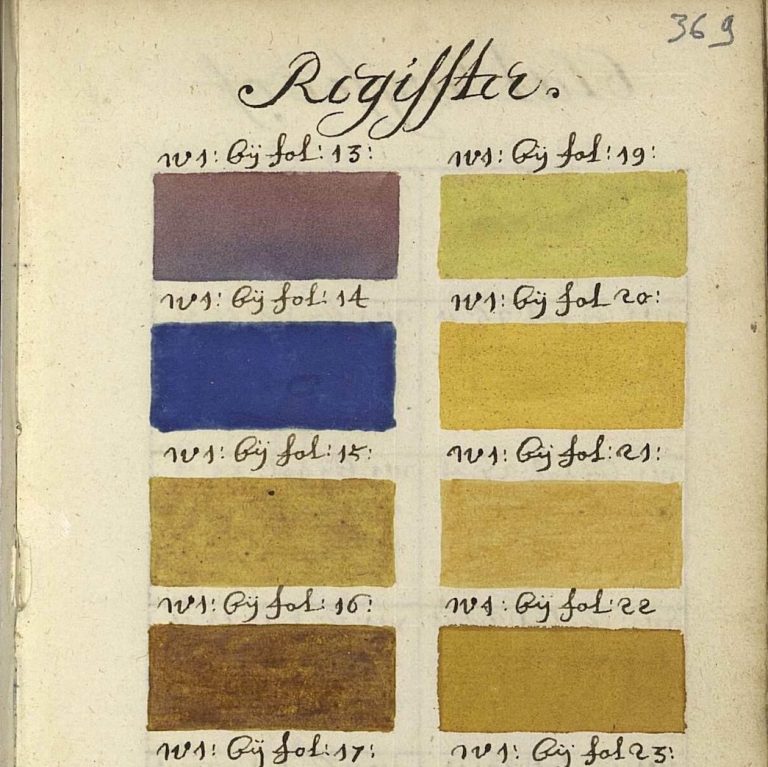 369
Regisster.
N1: bÿ fol: 13:
N1: bÿ fol: 19:
N1: bÿ fol: 14
N1: bÿ fol 20:
N1: bÿ fol: 15:
N1: bÿ fol: 21:
N1: bÿ fol: 16:
N1: bÿ fol: 22
N1: bÿ fol: 17:
N1: bÿ fol 23: